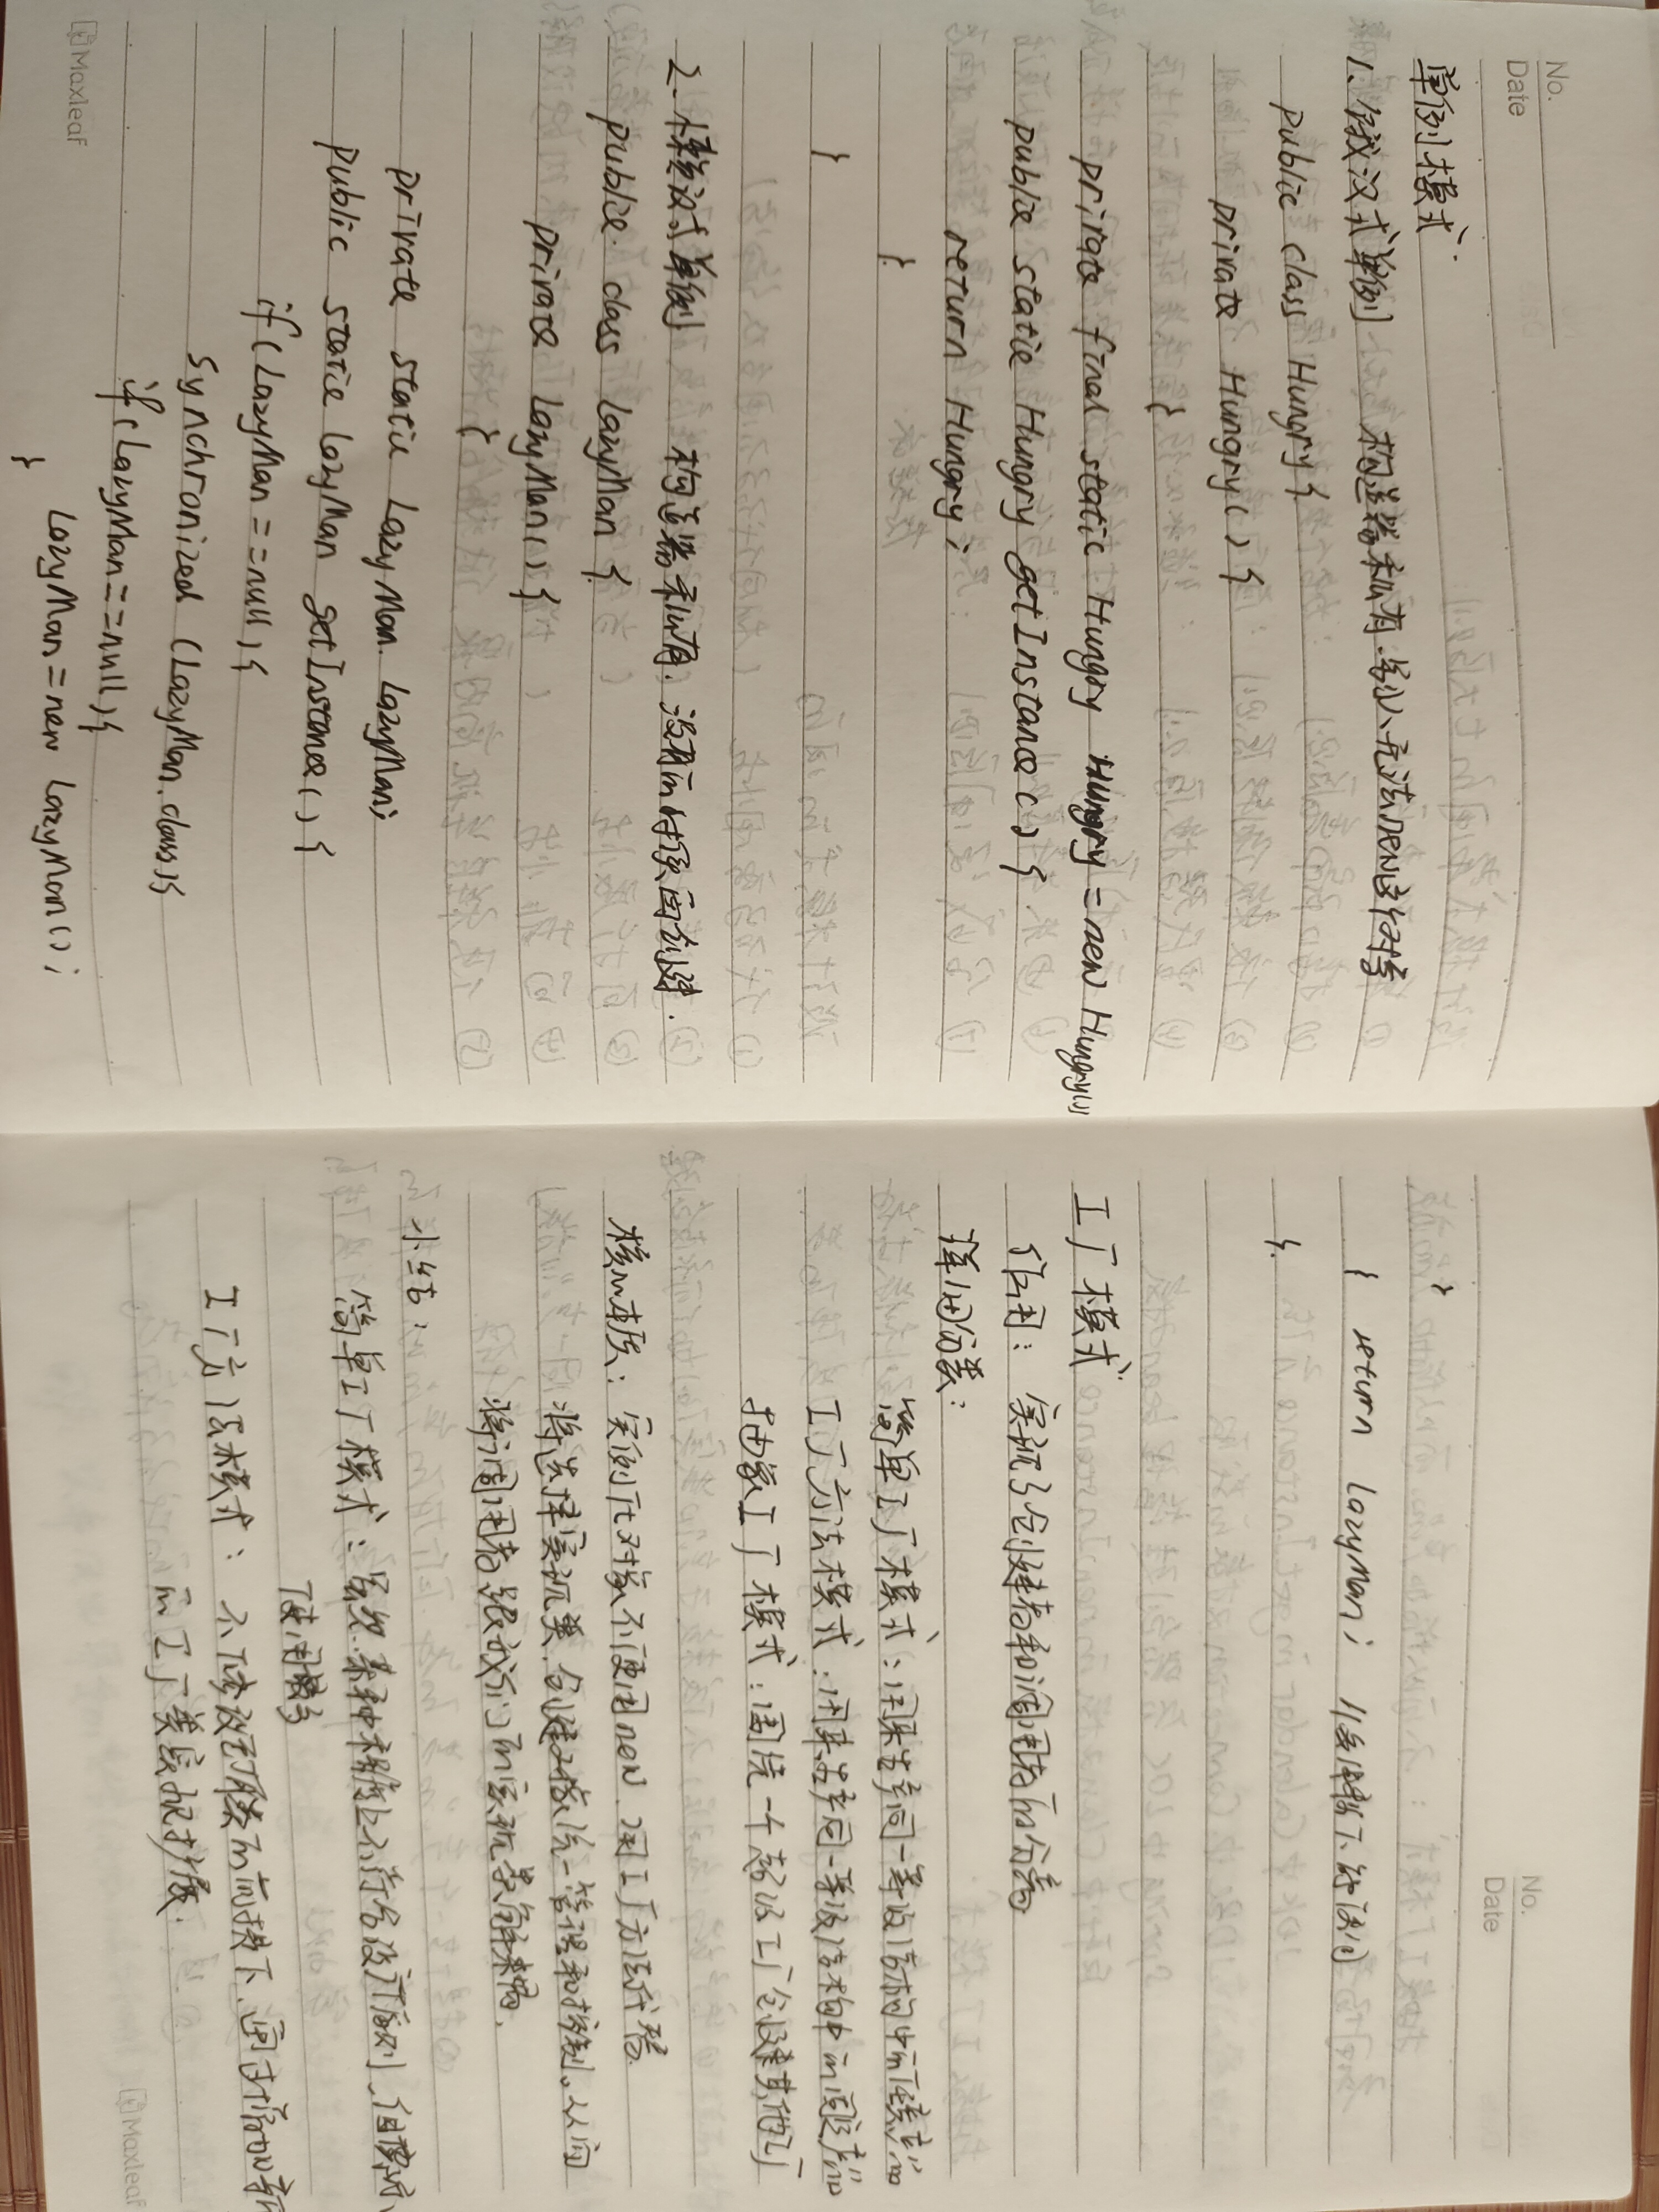 No.
Date
单例模式.
1. 饿汉式单例 构造器私有. 别人无法new这个对象
public class Hungry {
private Hungry() {
}
private final static Hungry Hungry = new Hungry();
public static Hungry getInstance() {
return Hungry;
}
}
2. 懒汉式单例 构造器私有. 没有的时候再创建.
public class LazyMan {
private LazyMan() {
}
private static LazyMan lazyMan;
public static LazyMan getInstance() {
if (LazyMan == null) {
synchronized (LazyMan.class) {
if (LazyMan == null) {
LazyMan = new LazyMan();
}
Maxleaf
No.
Date
}
} return lazyMan; //
}.
工厂模式
作用: 实现了创建者和调用者的分离
详细分类:
简单工厂模式: 用来生产同一等级结构中的任意产品
工厂方法模式: 用来生产同一等级结构中的固定产品
抽象工厂模式: 围绕一个超级工厂创建其他工厂
核心本质: 实例化对象不使用new, 用工厂方法代替.
将选择实现类, 创建对象统一管理和控制. 从而
将调用者跟我们的实现类解耦.
小结:
简单工厂模式: 虽然某种程度上不符合设计原则, 但实际
使用最多
工厂方法模式: 不修改已有类的前提下, 通过增加新
的工厂类实现扩展.
Maxleaf